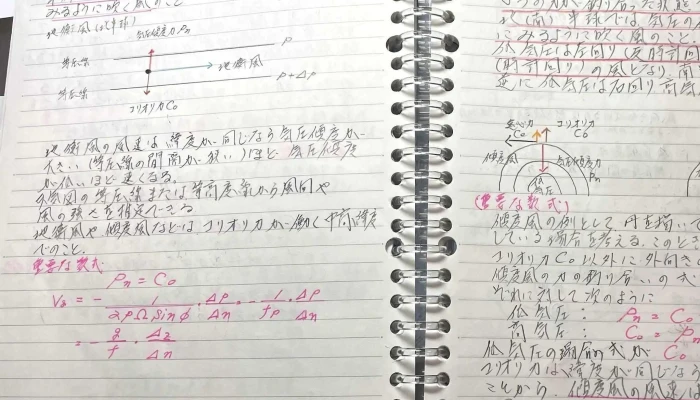 みるように吹く風のこと
地衡風(北半球)
気圧傾度力Pn
P
等圧線
地衡風
等圧線
P+Δρ
コリオリカCo
地衡風の風速は緯度が同じなら気圧傾度が
大きい(等圧線の間隔が狭い)ほど、気圧傾度
が低いほど速くなる。
天気図の等圧線または等高度線から風向や
風の強さを推定できる
地衡風や傾度風などはコリオリ力が働く中高緯度
でのこと。
重要な数式
Pn = Co
= - g/f · Δz/Δn
にみるように吹く風のこと
低気圧は左回り(反時計回
(時計回り)の風となり、南
逆に低気圧は右回り高気
遠心力
コリオリカ
Co
Co
傾度風
気圧傾度力
Pn
低
気圧
(重要な数式)
傾度風の例として、円を描いて
している場合を考える。このとき
コリオリカCo以外に外向き
傾度風の力の釣り合いの式
それに対して次のように
低気圧: Pn = Co
高気圧: Co = Pn
低気圧の場合の式が Co
コリオリカは緯度が同じなら
ことから、傾度風の風速は